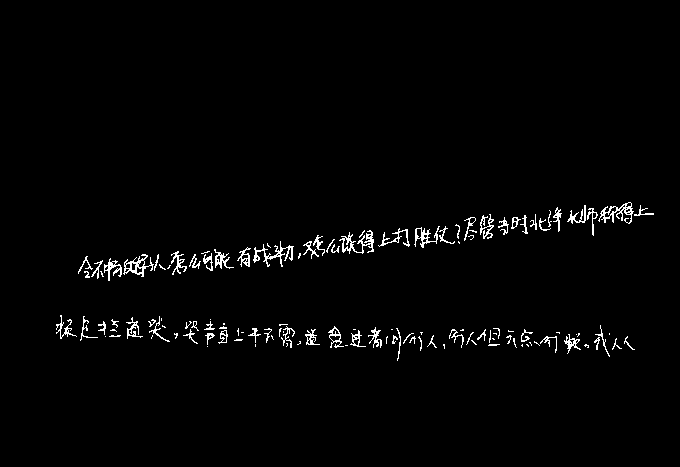 怎么可能有战斗力,又怎么谈得上打胜仗?尽管当时北洋水师称得上
足拦道哭,哭声直上干云霄,道旁过者问行人,行人但云点行频。我人人